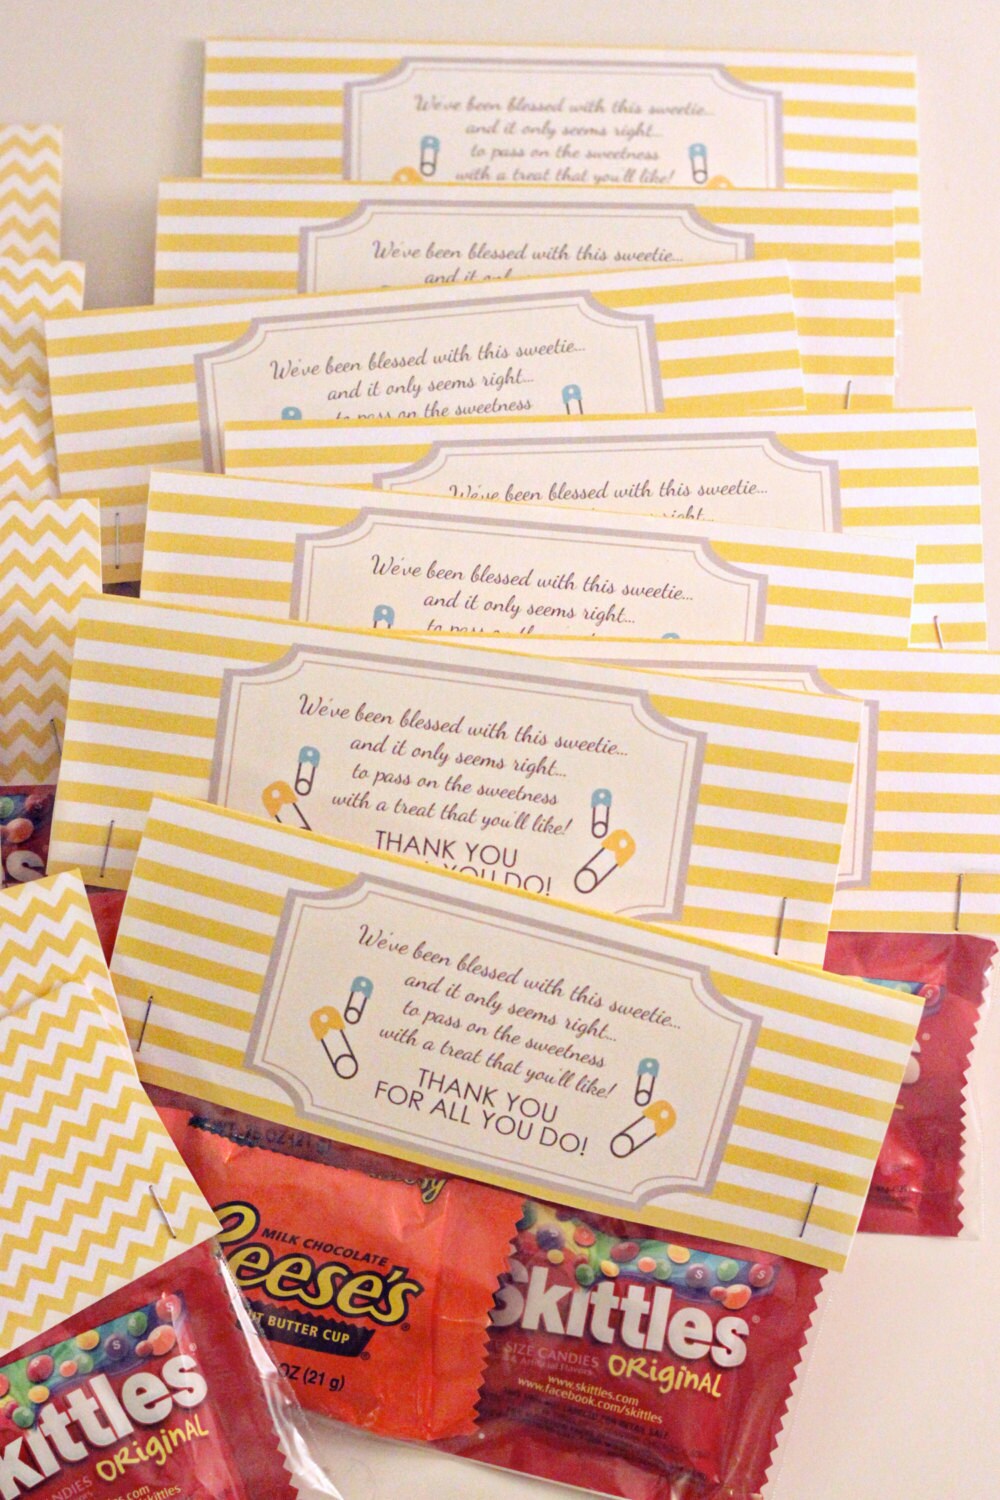 We've been blessed with this sweetie...
and it only seems right...
to pass on the sweetness
with a treat that you'll like!
We've been blessed with this sweetie...
and it
We've been blessed with this sweetie...
and it only seems right...
to pass on the sweetness
We've been blessed with this sweetie...
right...
We've been blessed with this sweetie...
and it only seems right...
We've been blessed with this sweetie...
and it only seems right...
to pass on the sweetness
with a treat that you'll like!
THANK YOU
YOU DO!
We've been blessed with this sweetie...
and it only seems right...
to pass on the sweetness
with a treat that you'll like!
THANK YOU
FOR ALL YOU DO!
MILK CHOCOLATE
Reese's
BUTTER CUP
OZ (21 g)
Skittles
SIZE CANDIES
ORiginAL
www.skittles.com
www.facebook.com/skittles
kittles
ORiginAL